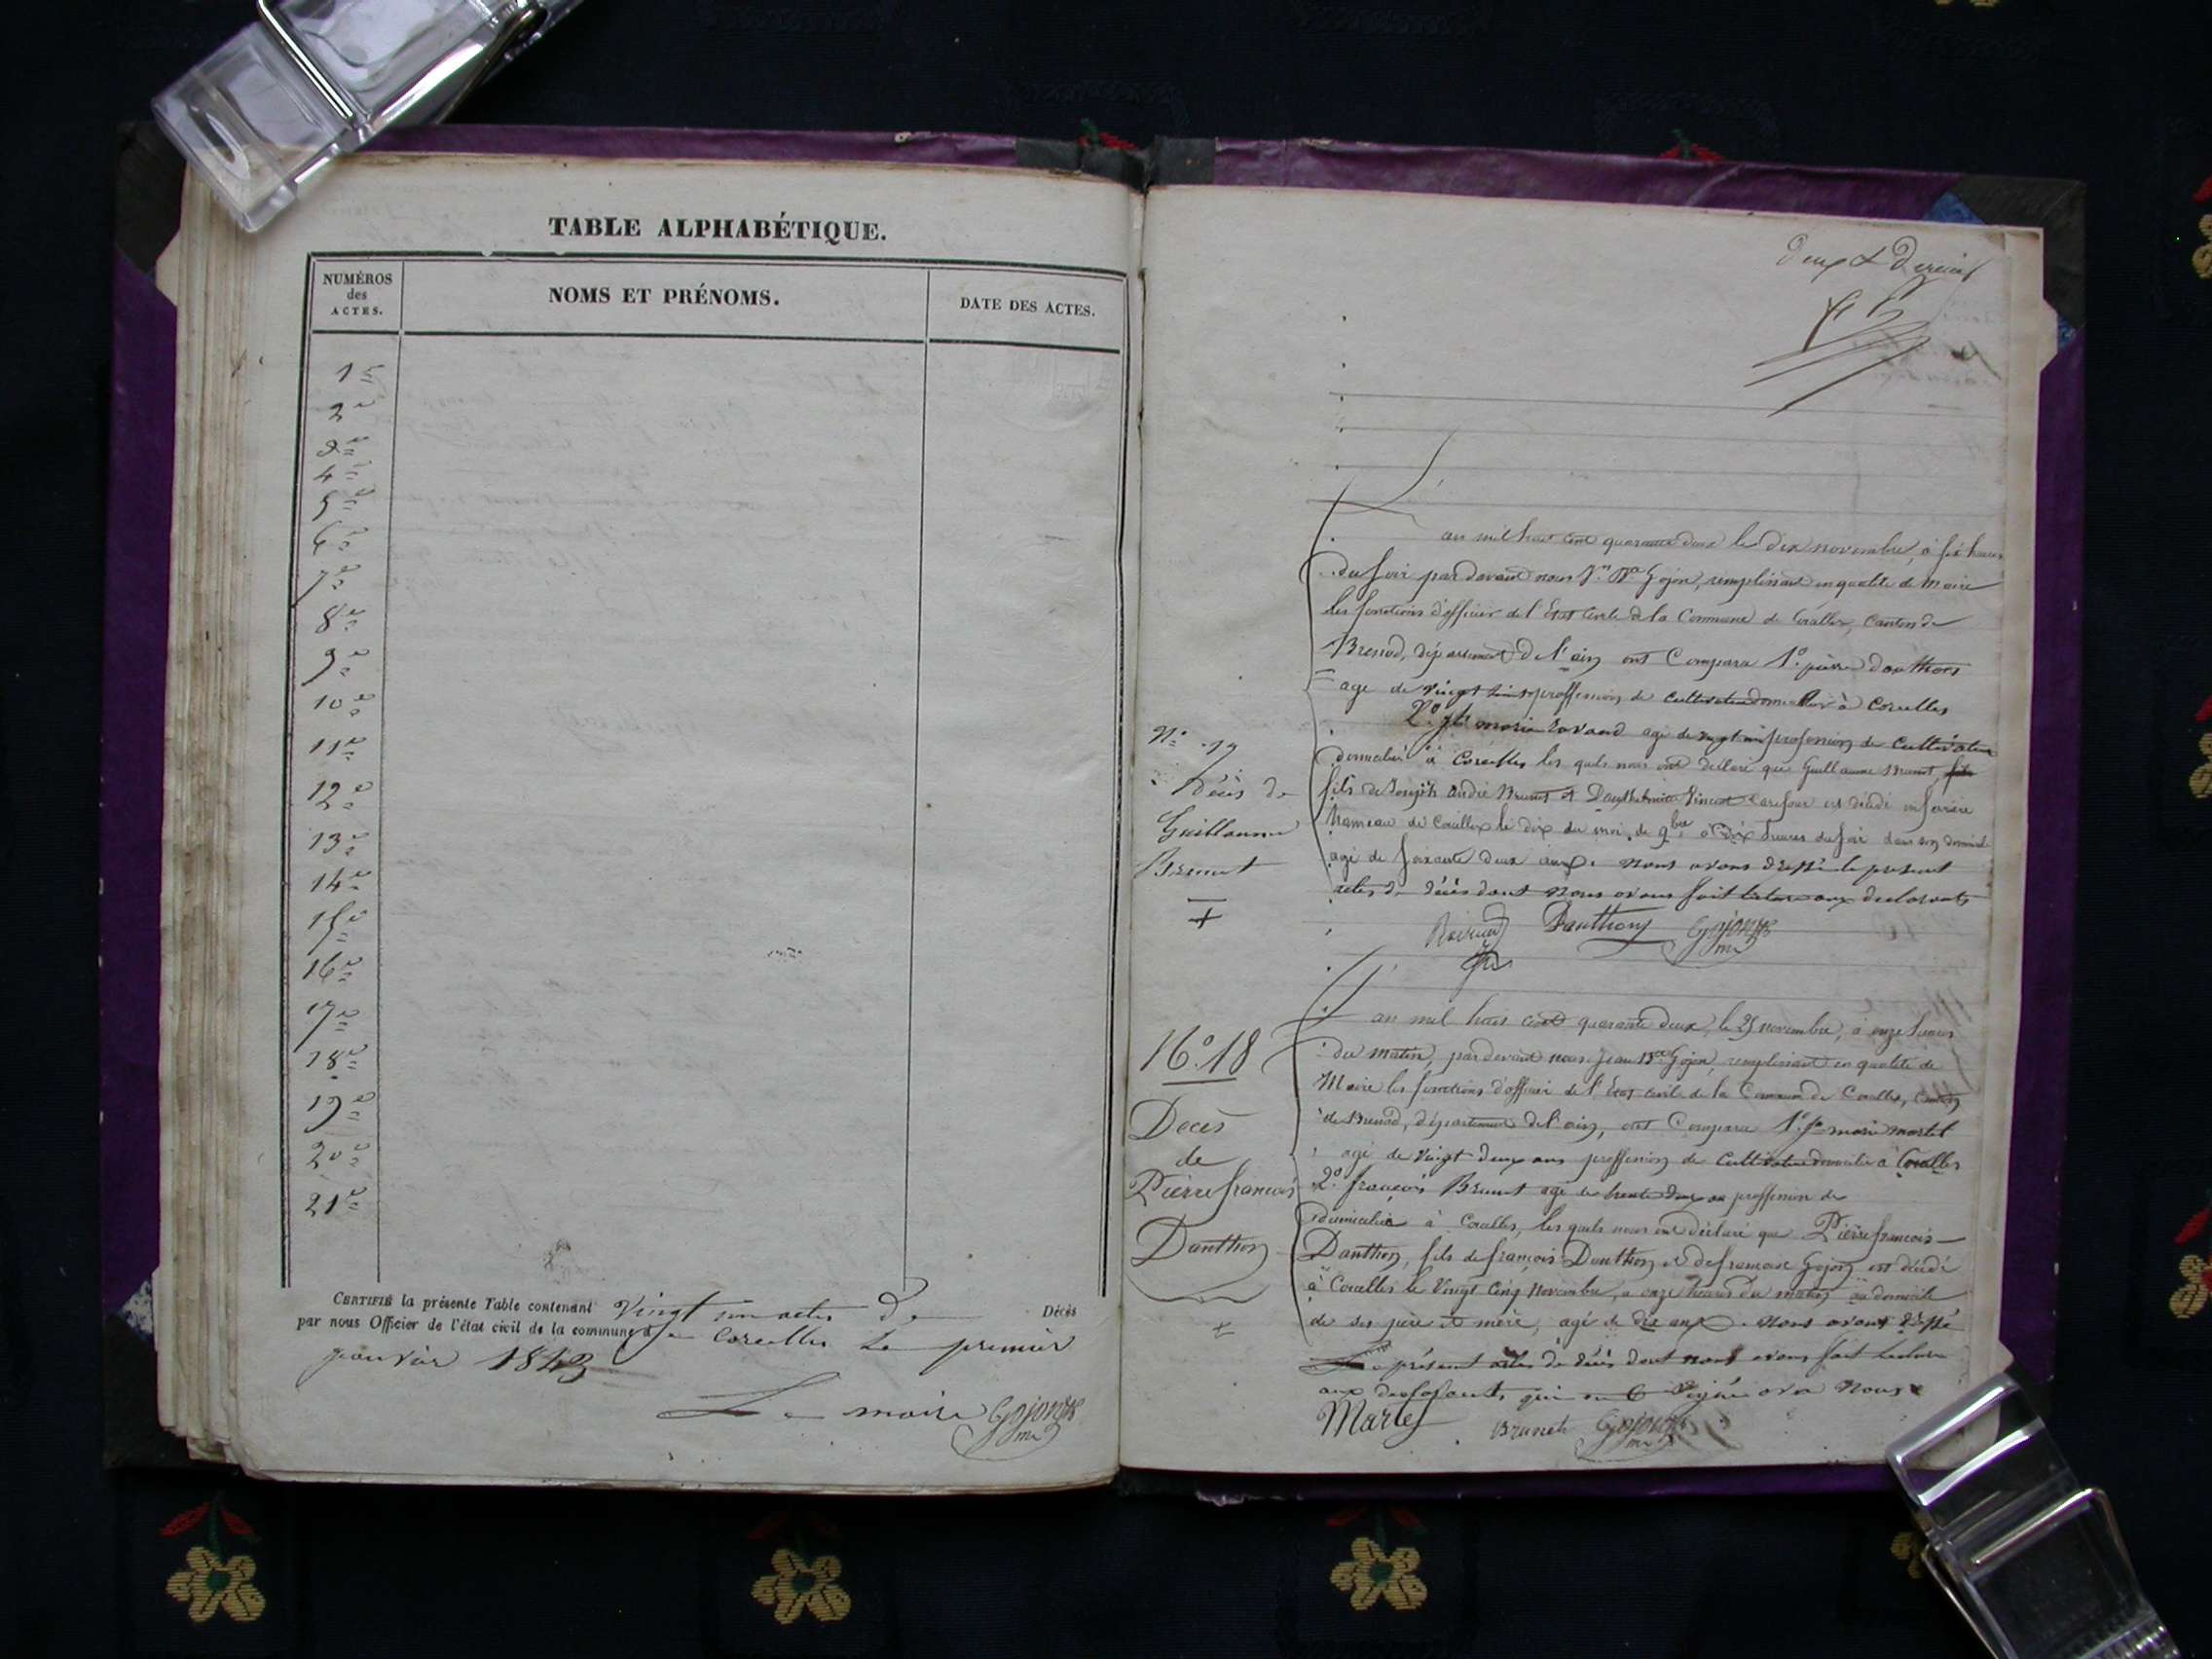 TABLE ALPHABÉTIQUE.
NUMÉROS
des
ACTES.
NOMS ET PRÉNOMS.
DATE DES ACTES.
1er
2e
3e
4e
5e
6e
7e
8e
9e
10e
11e
12e
13e
14e
15e
16e
17e
18e
19e
20e
21e
CERTIFIÉ la présente Table contenant vingt un actes de Décès
par nous Officier de l'état civil de la commune de Corcelles le premier
janvier 1843
Le maire Gojon
Deux & Dernier
L'an mil huit cent quarante deux le dix novembre, à six heures
du soir par devant nous Gojon, remplissant en qualité de Maire
les fonctions d'officier de l'Etat Civile de la Commune de Corcelles, Canton de
Brenod, département de l'ain ont Comparu 1° pierre Danthon
agé de vingt proffession de cultivateur domicilier à Corcelles
2° marie Ravaud agé de vingt profession de Cultivateur
domicilié à Corcelles les quels nous ont déclaré que Guillaume Brunet, fils
fils de Joseph André Brunet et est décédé
hameau de Corcelles le dix du moi de 9bre à heures du soir dans son domicile
agé de soixante deux ans. nous avons dressé le present
actes de décès dont nous avons fait lecture aux declarants
N° 17
Décès de
Guillaume
Brunet
Ravaud Danthon Gojon
L'an mil huit cent quarante deux, le 25 novembre, à onze heures
du matin, par devant nous Jean Gojon, remplissant en qualité de
Maire les fonctions d'officier de l'Etat civile de la Commune de Corcelles, Canton
de Brenod, département de l'ain, ont Comparu 1° marie martel
agé de vingt deux ans proffession de Cultivateur domicilié à Corcelles
2° françois Brunet agé de trente deux an proffession de
domicilié à Corcelles, les quels nous ont déclaré que Pierre francois
Danthon, fils de françois Danthon et de francoise Gojon est décédé
à Corcelles le Vingt Cinq Novembre, a onze heures du matin au domicile
de ses père et mère, agé de dix ans. nous avons dressé
Le présent actes de décès dont nous avons fait lecture
aux declarants qui on signé avec nous
16° 18
Decès
de
Pierre francois
Danthon
Martel Brunet Gojon